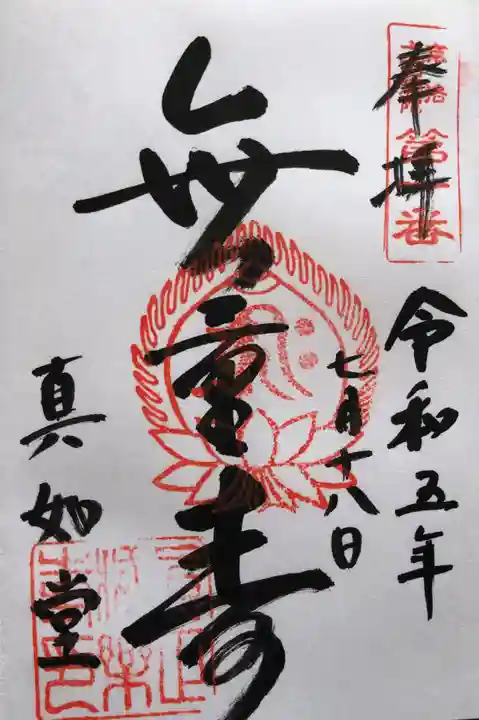 奉拝
第一番
令和五年
七月十八日
無量寿
真如堂